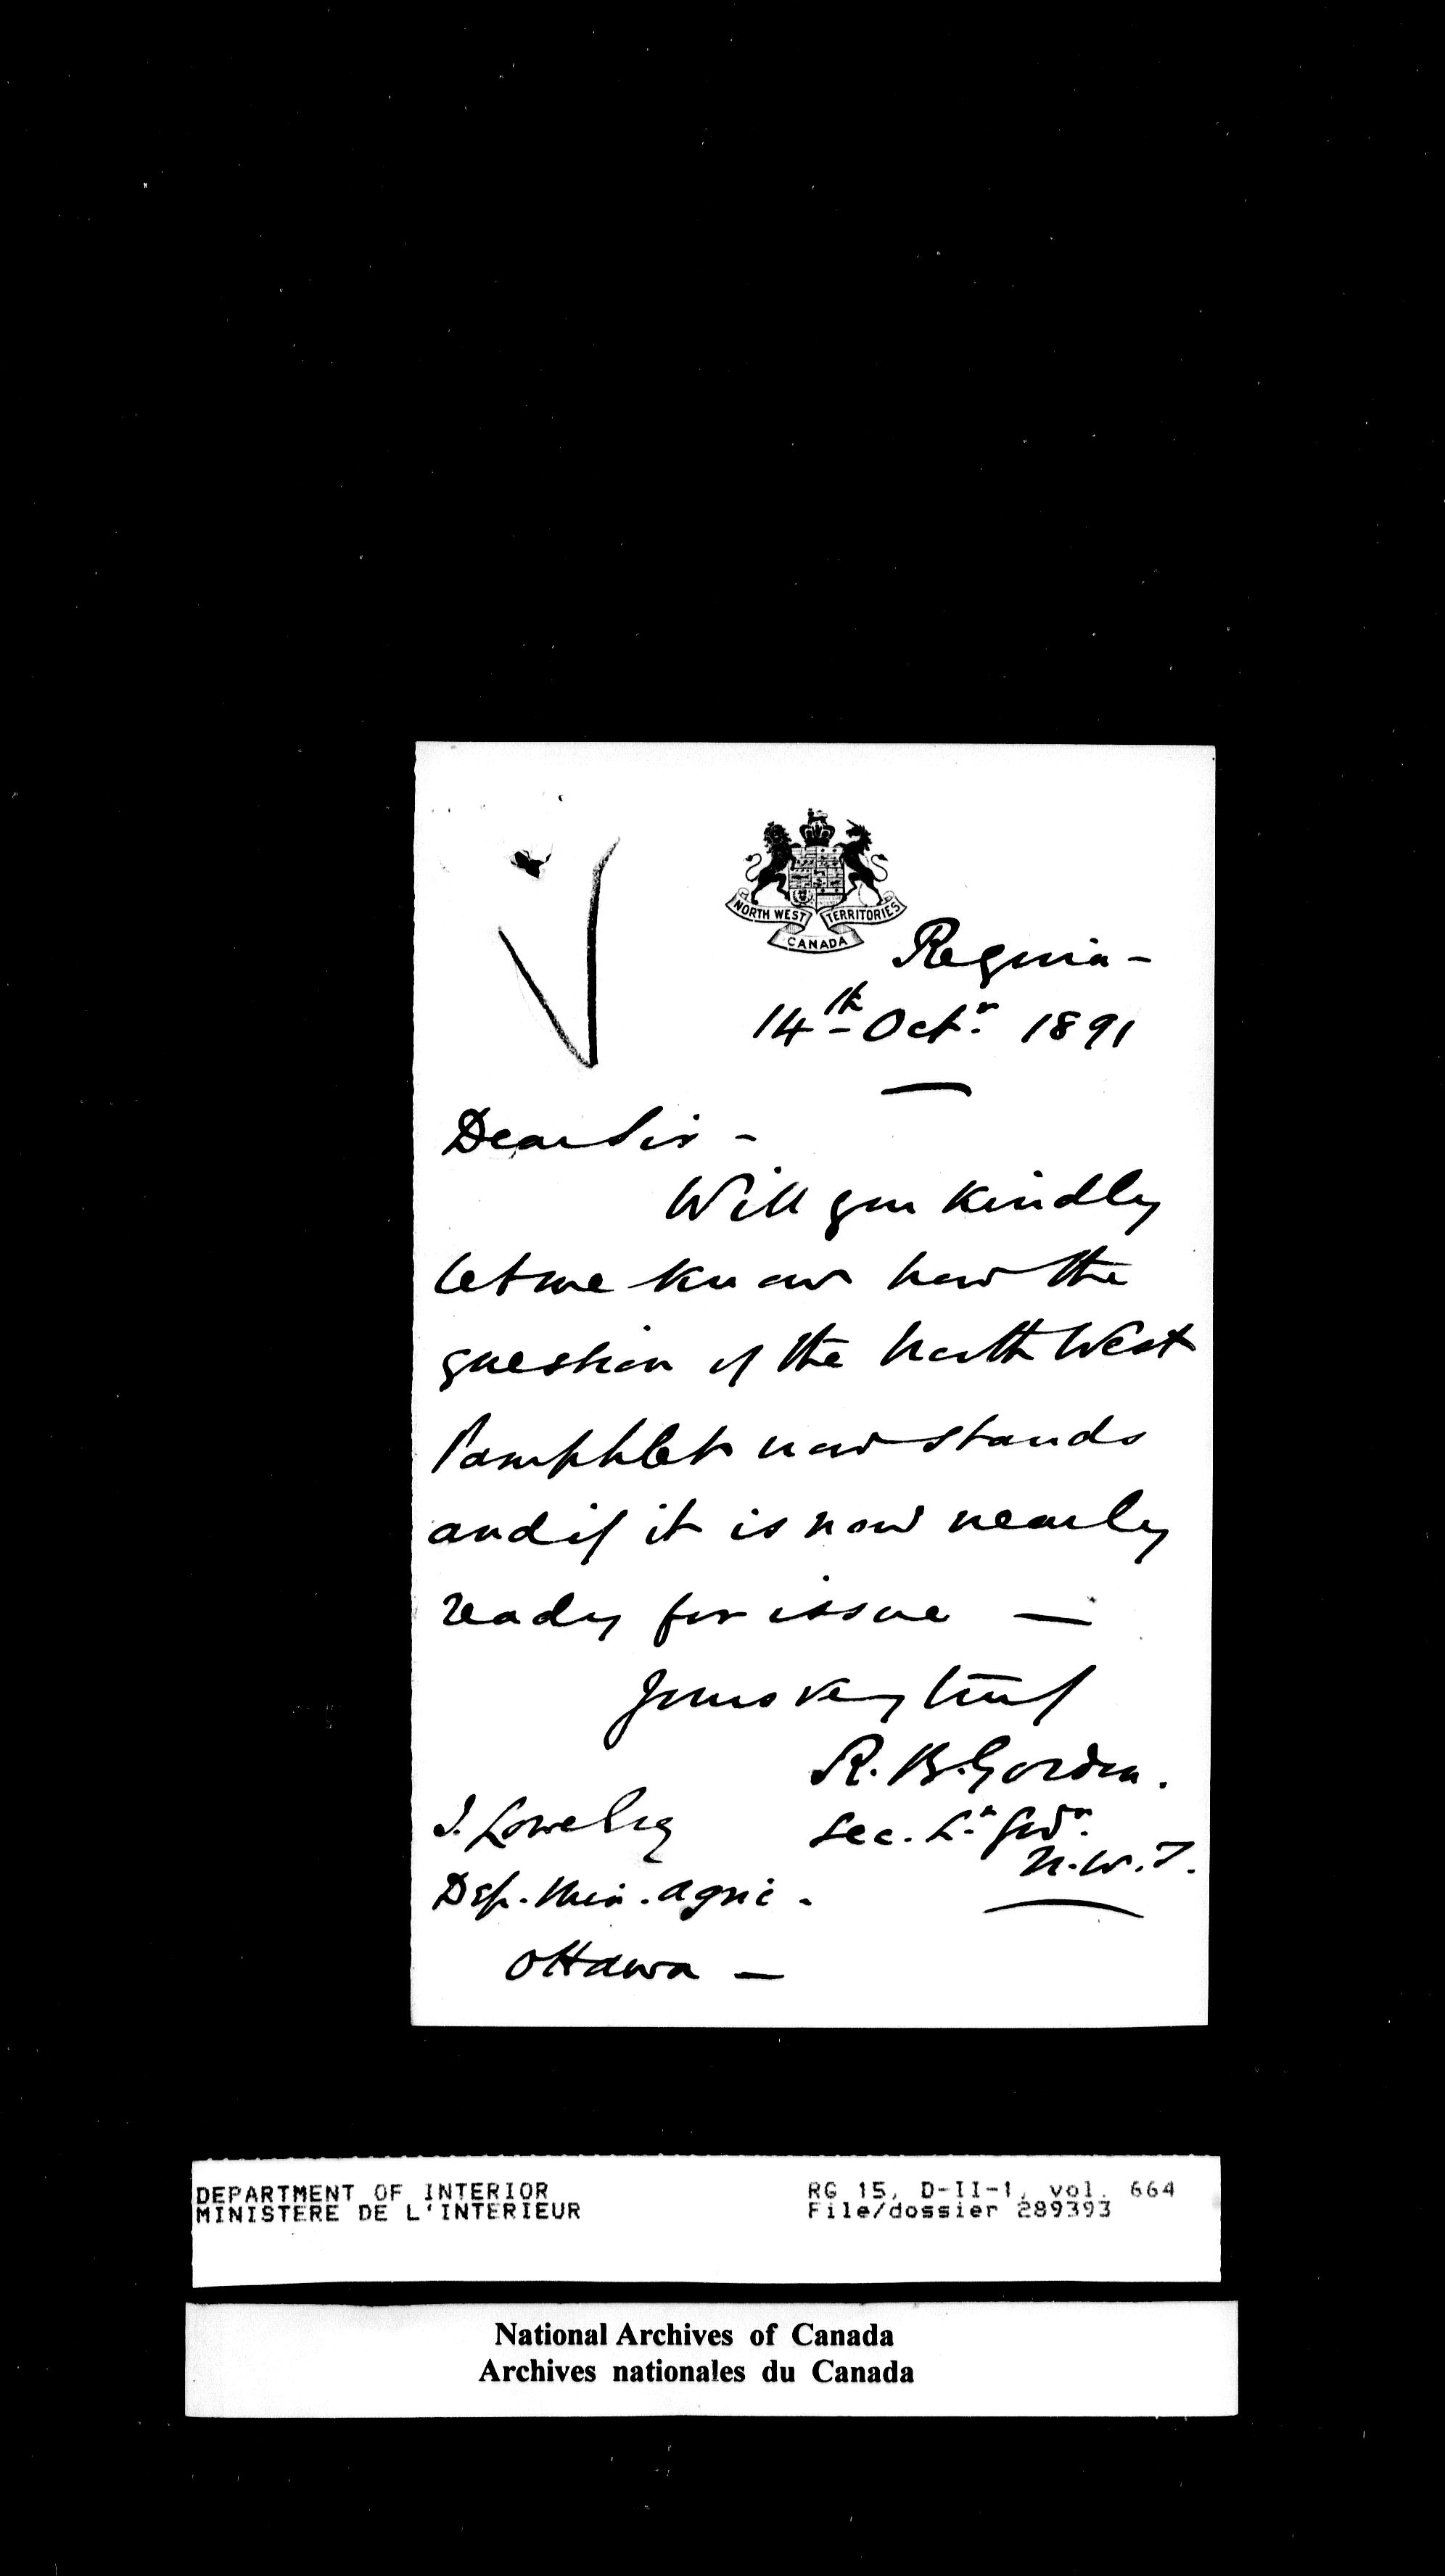 NORTH WEST TERRITORIES
CANADA
Regina -
14th Octr. 1891
Dear Sir -
Will you kindly
let me know how the
question of the North West
Pamphlet now stands
and if it is now nearly
ready for issue —
Yours very truly
R. B. Gordon.
Sec. Lt. Govr.
N.W.T.
J. Lowe Esq
Dep. Min. Agric.
Ottawa —
DEPARTMENT OF INTERIOR RG 15, D-II-1, vol. 664
MINISTERE DE L'INTERIEUR File/dossier 289393
National Archives of Canada
Archives nationales du Canada